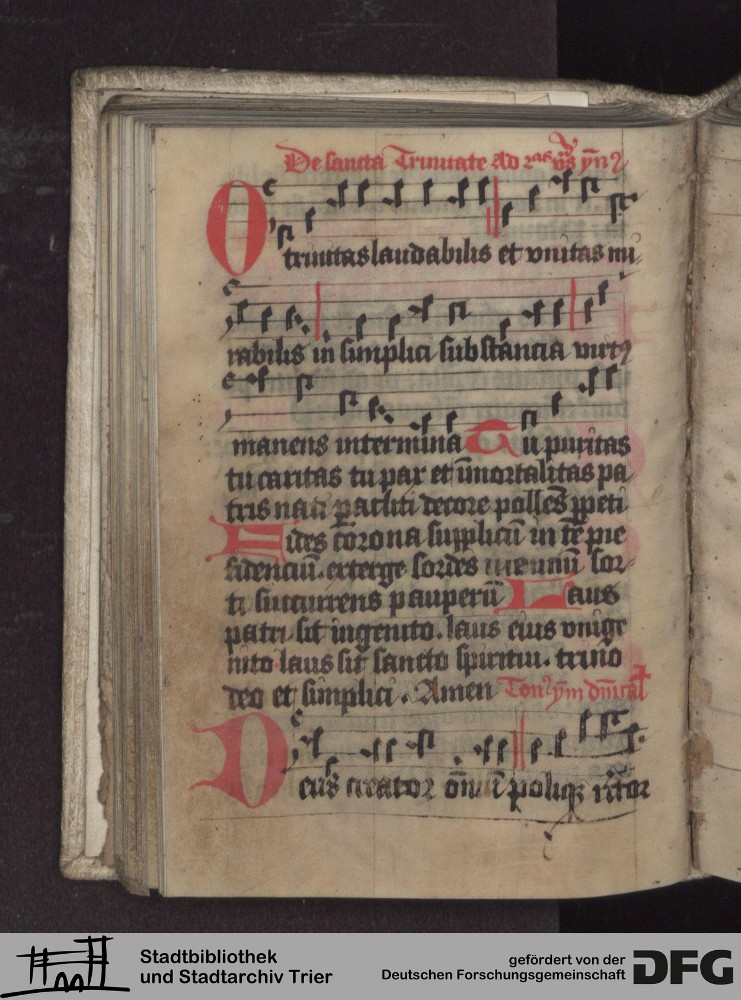 De sancta Trinitate Ad 2as vs̄ ȳn
O trinitas laudabilis et vnitas mi
rabilis in simplici substancia virtꝰ
manens intermina Tu puritas
tu caritas tu pax et īmortalitas pa
tris nati ꝑacliti decore pollēs ꝑpeti
Fides corona supplicū in tē pie
fidenciū. exterge sordes mentiū sor
ti succurrens pauperū Laus
patri sit ingenito. laus eius vnige
nito laus sit sancto spiritui. trino
deo et simplici. Amen Tonꝰ ȳm dn̄ical
Deus creator om̄iū poliqꝫ rc̄tor
Stadtbibliothek
und Stadtarchiv Trier
gefördert von der
Deutschen Forschungsgemeinschaft
DFG